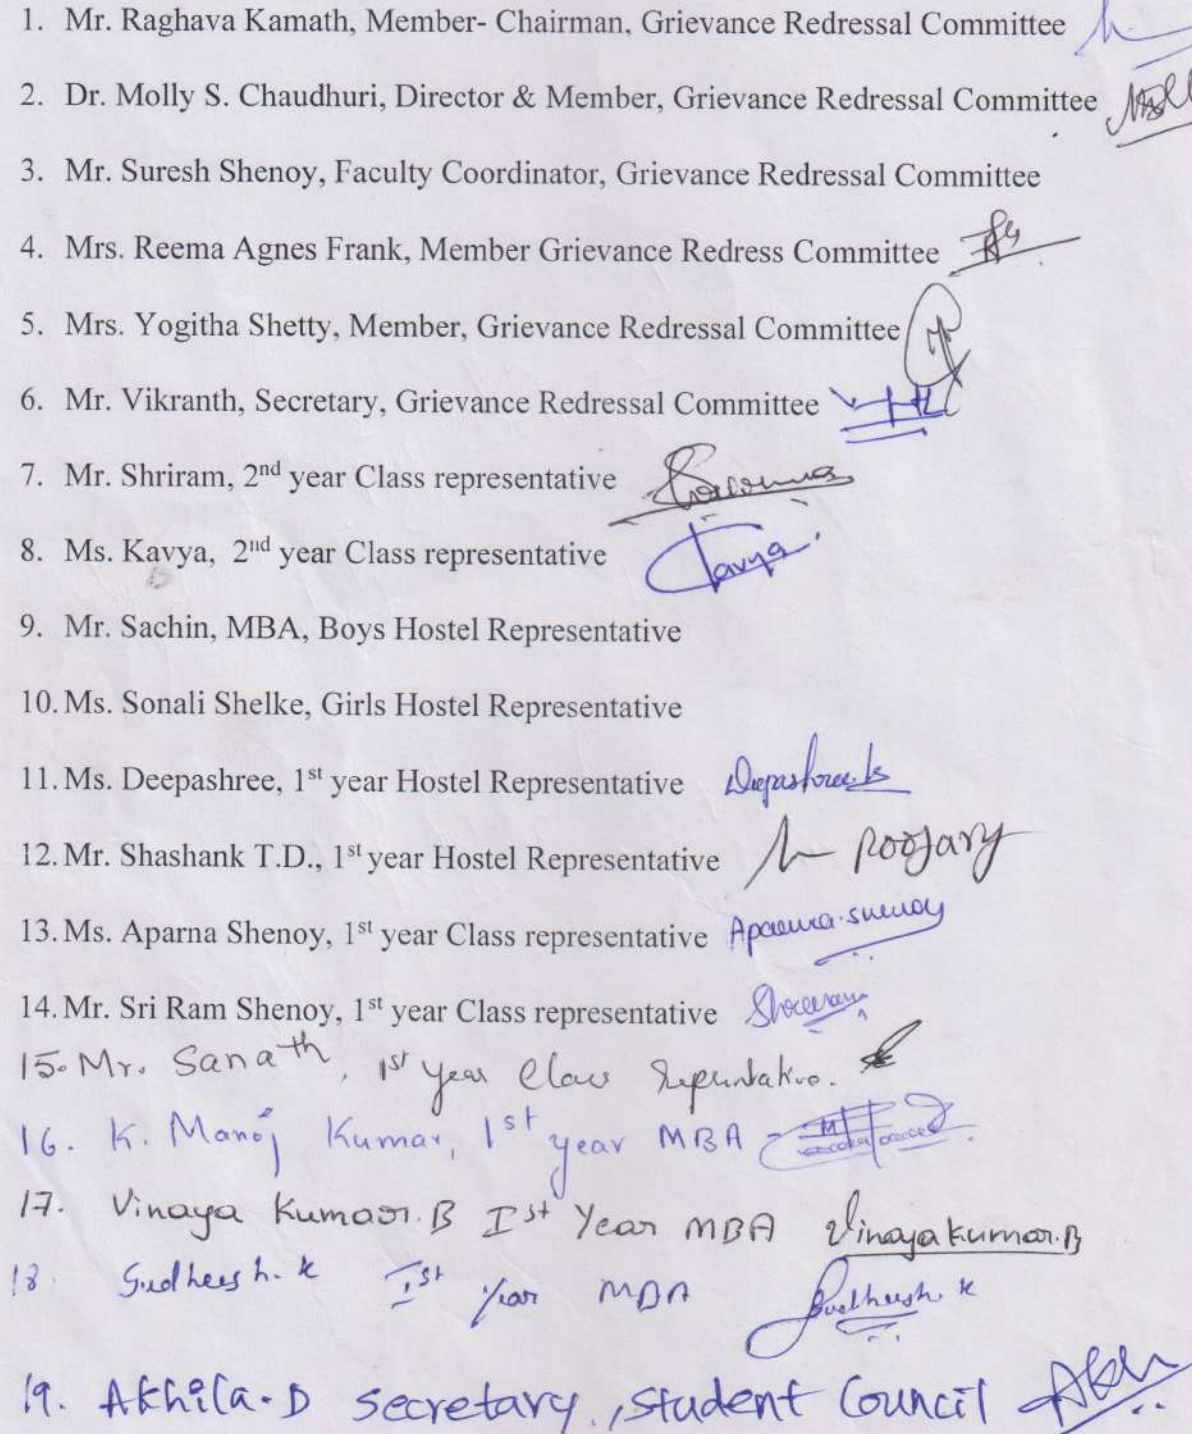 1. Mr. Raghava Kamath, Member- Chairman, Grievance Redressal Committee
2. Dr. Molly S. Chaudhuri, Director & Member, Grievance Redressal Committee
3. Mr. Suresh Shenoy, Faculty Coordinator, Grievance Redressal Committee
4. Mrs. Reema Agnes Frank, Member Grievance Redress Committee
5. Mrs. Yogitha Shetty, Member, Grievance Redressal Committee
6. Mr. Vikranth, Secretary, Grievance Redressal Committee
7. Mr. Shriram, 2nd year Class representative
8. Ms. Kavya, 2nd year Class representative Kavya.
9. Mr. Sachin, MBA, Boys Hostel Representative
10. Ms. Sonali Shelke, Girls Hostel Representative
11. Ms. Deepashree, 1st year Hostel Representative
12. Mr. Shashank T.D., 1st year Hostel Representative Poojary
13. Ms. Aparna Shenoy, 1st year Class representative Aparna.shenoy
14. Mr. Sri Ram Shenoy, 1st year Class representative Shreeram
15. Mr. Sanath, 1st year Class Representative.
16. K. Manoj Kumar, 1st year MBA -
17. Vinaya Kumar.B Ist Year MBA Vinayakumar.B
18. Sudheesh.k Ist Year MBA Sudheesh.k
19. Akhila.D Secretary, Student Council